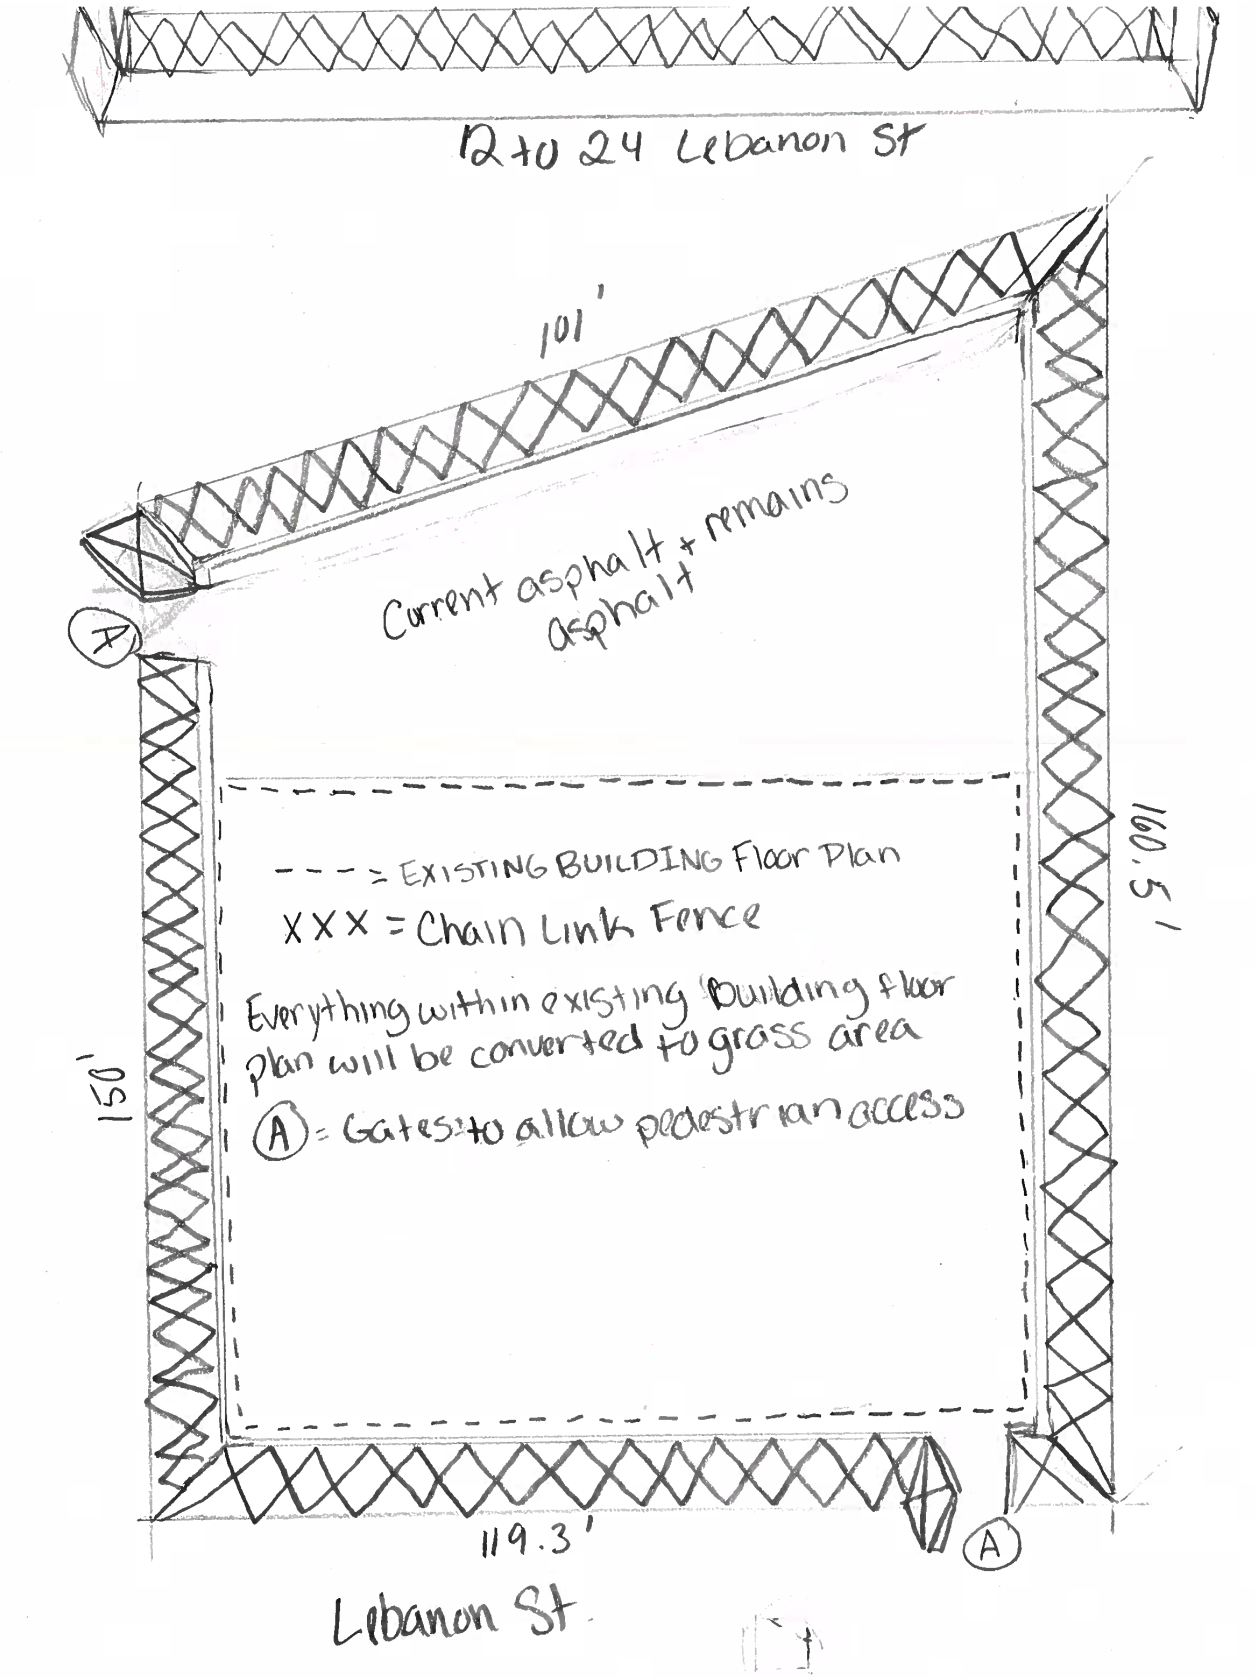 12 to 24 Lebanon St
101'
Current asphalt + remains
asphalt
A
160.5'
---- = EXISTING BUILDING Floor Plan
XXX = Chain Link Fence
Everything within existing building floor
plan will be converted to grass area
A = Gates to allow pedestrian access
150'
119.3'
A
Lebanon St.